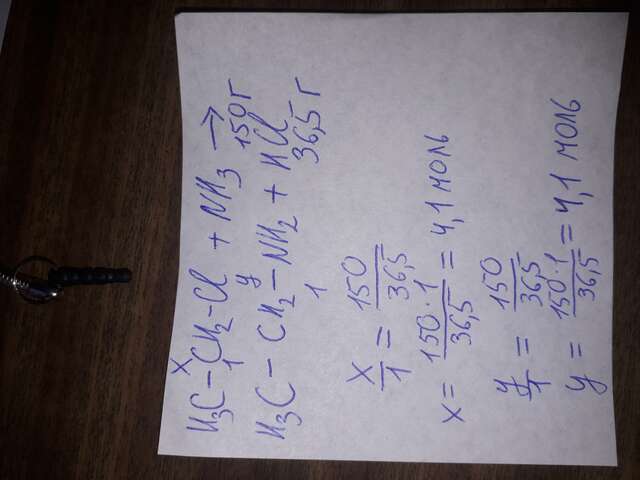 x
H₃C – CH₂ – Cl + NH₃ →
1
y 150г
H₃C – CH₂ – NH₂ + HCl
1 36,5 г
x/1 = 150/36,5
x = 150 · 1/36,5 = 4,1 моль
y/1 = 150/36,5
y = 150 · 1/36,5 = 4,1 моль